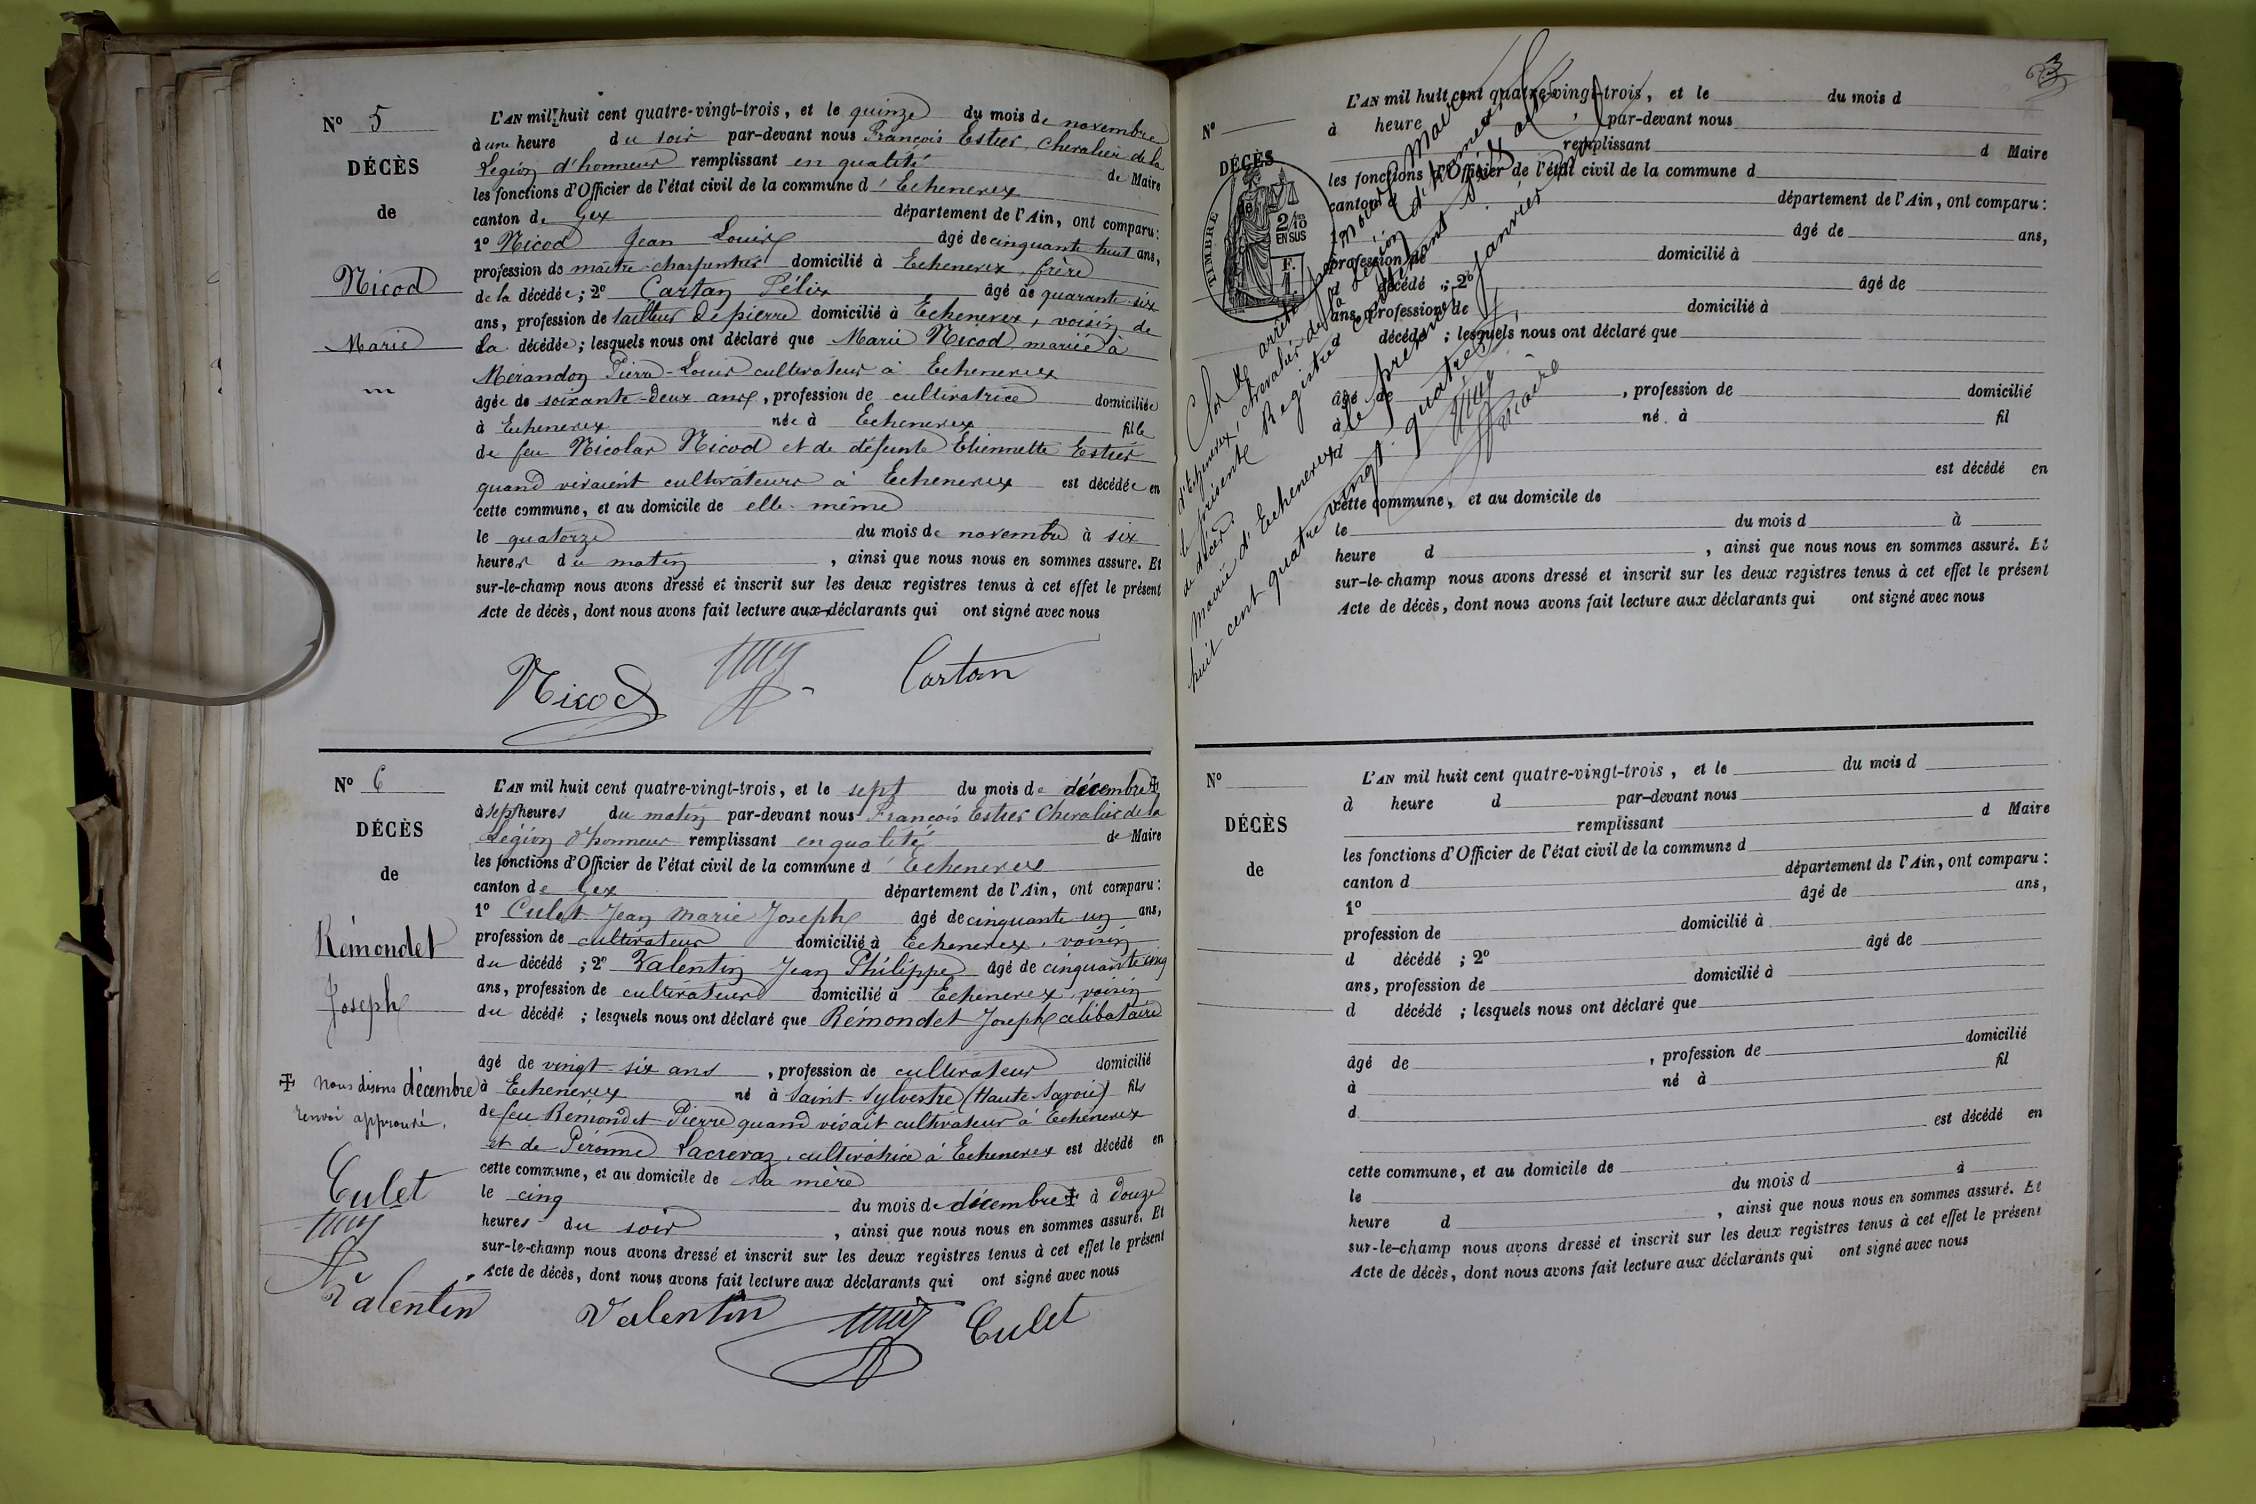 N° 5
DÉCÈS
de
Nicod
Marie
L'AN mil huit cent quatre-vingt-trois, et le quinze du mois de novembre
à une heure du soir par-devant nous François Estier, chevalier de la
Légion d'honneur remplissant en qualité de Maire
les fonctions d'Officier de l'état civil de la commune d'Echenevex
canton de Gex département de l'Ain, ont comparu:
1° Nicod Jean Louis âgé de cinquante huit ans,
profession de maître-charpentier domicilié à Echenevex, frère
de la décédée; 2° Cartan Félix âgé de quarante-six
ans, profession de tailleur de pierre domicilié à Echenevex, voisin de
La décédée; lesquels nous ont déclaré que Marie Nicod, mariée à
Mérandon Pierre-Louis cultivateur à Echenevex
âgée de soixante-deux ans, profession de cultivatrice domiciliée
à Echenevex née à Echenevex fille
de feu Nicolas Nicod et de défunte Etiennette Estier
quand vivaient cultivateurs à Echenevex est décédée en
cette commune, et au domicile de elle-même
le quatorze du mois de novembre à six
heures du matin, ainsi que nous nous en sommes assuré. Et
sur-le-champ nous avons dressé et inscrit sur les deux registres tenus à cet effet le présent
Acte de décès, dont nous avons fait lecture aux déclarants qui ont signé avec nous
Nicod Cartan
N° 6
DÉCÈS
de
Rémondet
Joseph
Nous disons décembre
renvoi approuvé.
Culet
Valentin
L'AN mil huit cent quatre-vingt-trois, et le sept du mois de décembre
à sept heures du matin par-devant nous François Estier Chevalier de la
Légion d'honneur remplissant en qualité de Maire
les fonctions d'Officier de l'état civil de la commune d'Echenevex
canton de Gex département de l'Ain, ont comparu:
1° Culet Jean Marie Joseph âgé de cinquante un ans,
profession de cultivateur domicilié à Echenevex, voisin
du décédé; 2° Valentin Jean Philippe âgé de cinquante cinq
ans, profession de cultivateur domicilié à Echenevex, voisin
du décédé; lesquels nous ont déclaré que Rémondet Joseph célibataire
âgé de vingt-six ans, profession de cultivateur domicilié
à Echenevex né à Saint-Sylvestre (Haute-Savoie) fils
de feu Rémondet Pierre quand vivait cultivateur à Echenevex
et de Péronne Lacrevaz, cultivatrice à Echenevex est décédé en
cette commune, et au domicile de sa mère
le cinq du mois de décembre à douze
heures du soir, ainsi que nous nous en sommes assuré. Et
sur-le-champ nous avons dressé et inscrit sur les deux registres tenus à cet effet le présent
Acte de décès, dont nous avons fait lecture aux déclarants qui ont signé avec nous
Valentin Culet
N°
DÉCÈS
de
TIMBRE
2/10
EN SUS
F.
1
L'AN mil huit cent quatre-vingt-trois, et le du mois d
à heure, par-devant nous
remplissant d Maire
les fonctions d'Officier de l'état civil de la commune d
canton d département de l'Ain, ont comparu:
âgé de ans,
profession de domicilié à
d décédé; 2° âgé de
ans, profession de domicilié à
décédé; lesquels nous ont déclaré que
âgé de, profession de domicilié
à né à fil
d
est décédé en
cette commune, et au domicile de
le du mois d à
heure d, ainsi que nous nous en sommes assuré. Et
sur-le-champ nous avons dressé et inscrit sur les deux registres tenus à cet effet le présent
Acte de décès, dont nous avons fait lecture aux déclarants qui ont signé avec nous
Clos et arrêté par Nous Maire
d'Echenevex, chevalier de la Légion d'honneur
le présent Registre contenant six actes
de décès.
Mairie d'Echenevex le premier janvier mil
huit cent quatre vingt-quatre.
Maire
N°
DÉCÈS
de
L'AN mil huit cent quatre-vingt-trois, et le du mois d
à heure d par-devant nous
remplissant d Maire
les fonctions d'Officier de l'état civil de la commune d
canton d département de l'Ain, ont comparu:
1° âgé de ans,
profession de domicilié à
d décédé; 2° âgé de
ans, profession de domicilié à
d décédé; lesquels nous ont déclaré que
âgé de, profession de domicilié
à né à fil
d
est décédé en
cette commune, et au domicile de
le du mois d à
heure d, ainsi que nous nous en sommes assuré. Et
sur-le-champ nous avons dressé et inscrit sur les deux registres tenus à cet effet le présent
Acte de décès, dont nous avons fait lecture aux déclarants qui ont signé avec nous